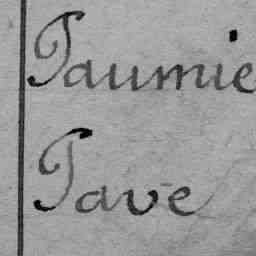 Paumie
Pave